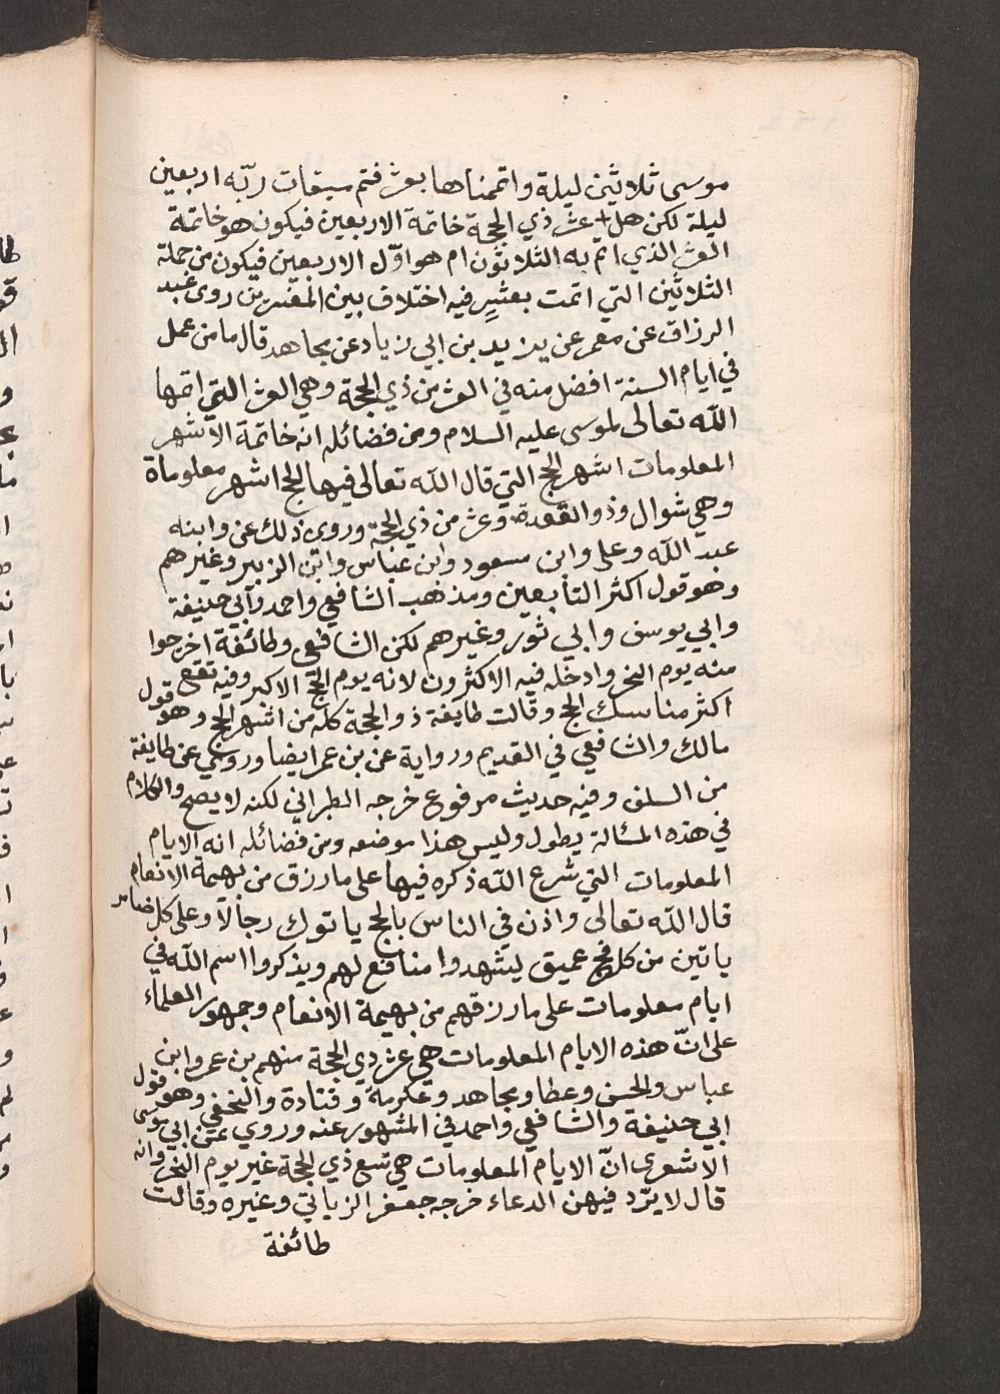 موسى ثلاثين ليلة واتممناها بعشر فتم ميقات ربّه اربعين
ليلة لكن هل عشر ذي الحجة خاتمة الاربعين فيكون هو خاتمة
العشر الذي اتم به الثلاثون ام هو اوّل الاربعين فيكون من جملة
الثلاثين التي اتمت بعشرٍ فيه اختلاف بين المفسرين روى عبد
الرزاق عن معمر عن يزيد بن ابي زياد عن مجاهد قال ما من عمل
في ايام السنة افضل منه في العشر من ذي الحجة وهي العشر التي اتمها
الله تعالى لموسى عليه السلام ومن فضائله انه خاتمة الاشهر
المعلومات اشهر الحج التي قال الله تعالى فيها الحج اشهر معلوماة
وهي شوال وذو القعدة وعشر من ذي الحجة وروي ذلك عن وابنه
عبد الله وعلى وابن مسعود وابن عباس وابن الزبير وغيرهم
وهو قول اكثر التابعين ومذهب الشافعي واحمد وابي حنيفة
وابي يوسف وابي ثور وغيرهم لكن الشافعي وطائفة اخرجوا
منه يوم النحر وادخله فيه الاكثرون لانه يوم الحج الاكبر وفيه تقع
اكثر مناسك الحج وقالت طايفة ذو الحجة كله من اشهر الحج وهو قول
مالك والشافعي في القديم ورواية عن بن عمر ايضا وروي عن طايفة
من السلف وفيه حديث مرفوع خرجه الطبراني لكنه لا يصح والكلام
في هذه المسئالة يطول وليس هذا موضعه ومن فضائله انه الايام
المعلومات التي شرع الله ذكره فيها على ما رزق من بهيمة الانعام
قال الله تعالى واذن في الناس بالحج ياتوك رجالاً وعلى كل ضامر
ياتين من كل فج عميق ليشهدوا منافع لهم ويذكروا اسم الله في
ايام معلومات على ما رزقهم من بهيمة الانعام وجمهور العلماء
على انّ هذه الايام المعلومات هي عشر ذي الحجة منهم بن عمر وابن
عباس والحسن وعطا ومجاهد وعكرمة وقتادة والنخعي وهو قول
ابي حنيفة والشافعي واحمد في المشهور عنه وروي عن ابي موسى
الاشعرى انّ الايام المعلومات هي تسع ذي الحجة غير يوم النحر وانه
قال لا يرّد فيهن الدعاء خرجه جعفر الزياتي وغيره وقالت
طائفة